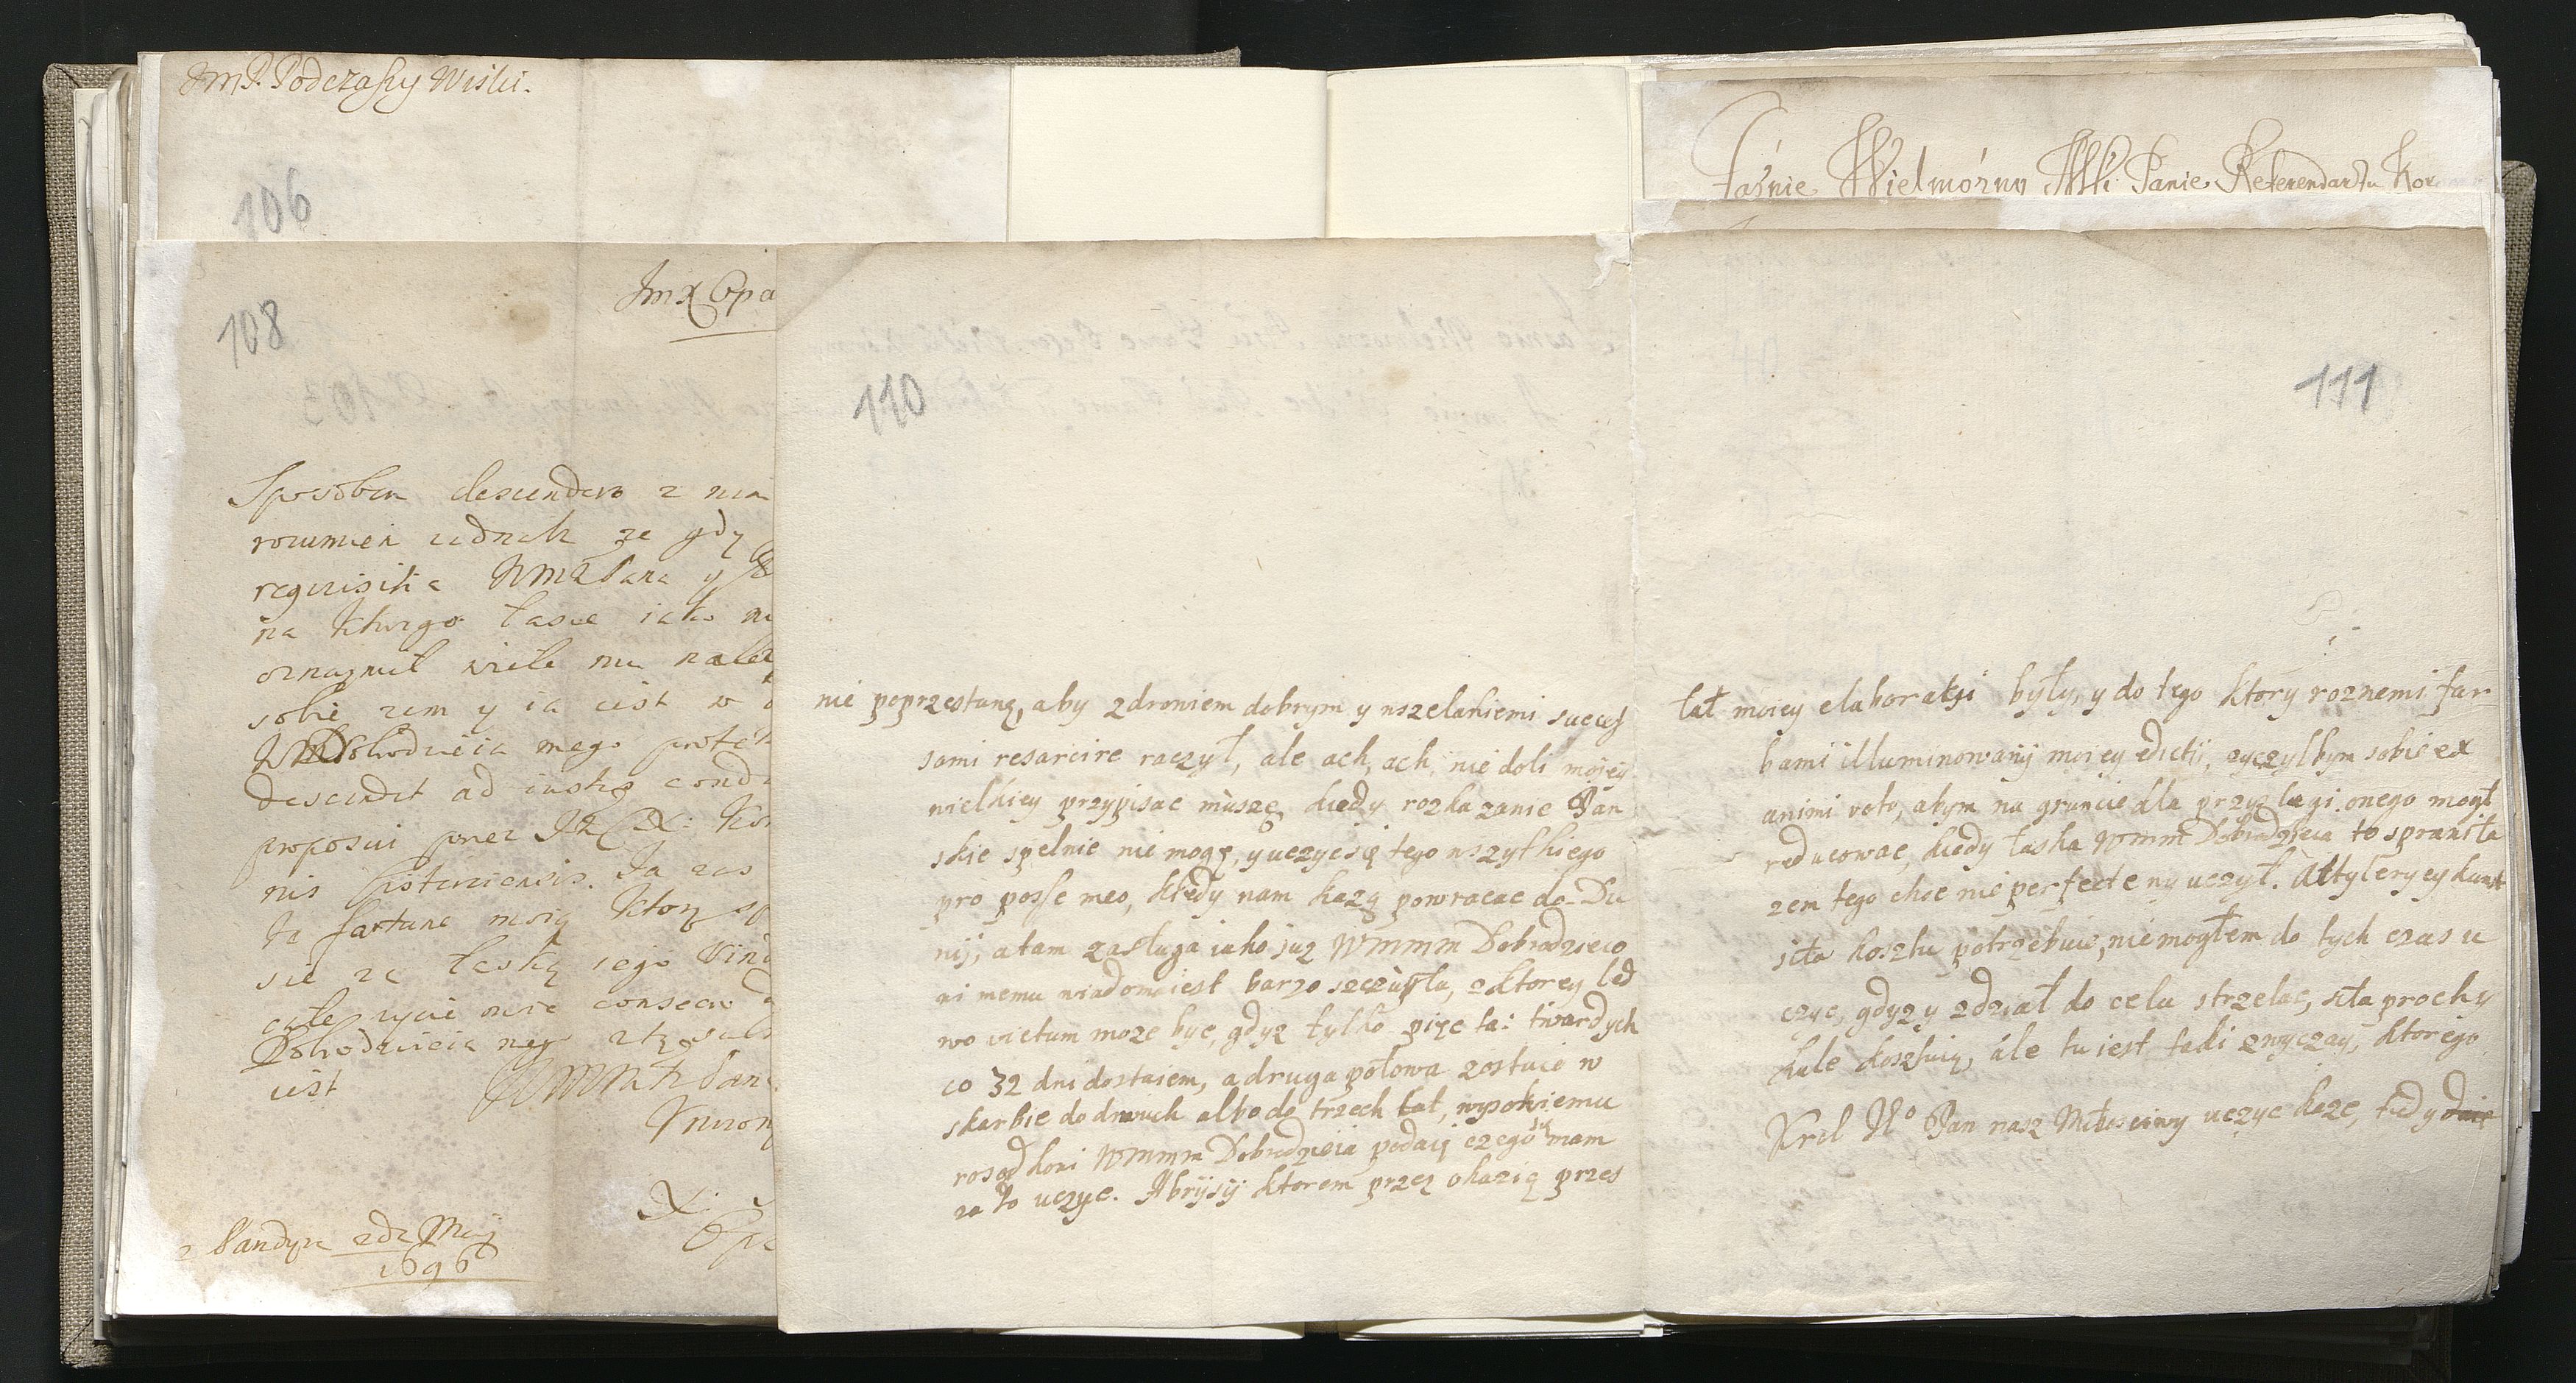 JmP. Podczaszy Wislic.
106
Jaśnie Wielmożny Panie Referendarzu Kor
108
Jmx Opa
Sposobem descendero z nim
rozumien iednak ze gdy
requisitia WM Pana y
na ktorego łasce iako
oznaymił wiele mu nalez
sobie zem y ia iest w
Dobrodzieia mego protek
descendet ad iustas condi
proposui przez
nis Ja zas
Ta fortune moię ktorą
sie za łaską iego
całe zycie moie consecro
Dobrodzieia mego
iest
X:
Opa
z Sandyza 2da Maij
1696
110
nie poprzestanę, aby zdrowiem dobrym y wszelakiemi succes
sami resarcire raczył, ale ach, ach, nie doli mojey
wielkiey przypisac muszę, kiedy rozkazanie Pan
skie spełnic nie mogę, y uczyc się tego wszytkiego
pro posse meo, kiedy nam każą powracac do Du
nij, a tam zasługa iako juz WMMM Dobrodzieio
wi memu wiadoma iest barzo szczupła, z ktorey led
wo victum moze byc, gdyz tylko pięc ta: twardych
co 32 dni dostaiem, a druga połowa zostaie w
skarbie do dwuch albo do trzech lat, wysokiemu
rosądkowi WMMM Dobrodzieia podaię czego się mam
za to uczyc. Abrijsij ktorem przez okazią przes
111
łał moiey elaboratij były, y do tego ktory roznemi far
bami illuminowanij moiey edictij, zyczylbym sobie ex
animi voto, abym na gruncie dla przysługi onego mogł
reducowac, kiedy łaska WMMM Dobrodzieia to sprawiła
zem tego choc nie perfecte ny uczył. Attyleryey kunst
siła kosztu potrzebuie, nie mogłem do tych czas u
czyc, gdyz y z dział do celu strzelac, siła prochy
kule kosztuią, ale tu iest taki zwyczay, ktorego
Krol Jo Pan nasz Miłosciwy uczyc kaze, tedy daie